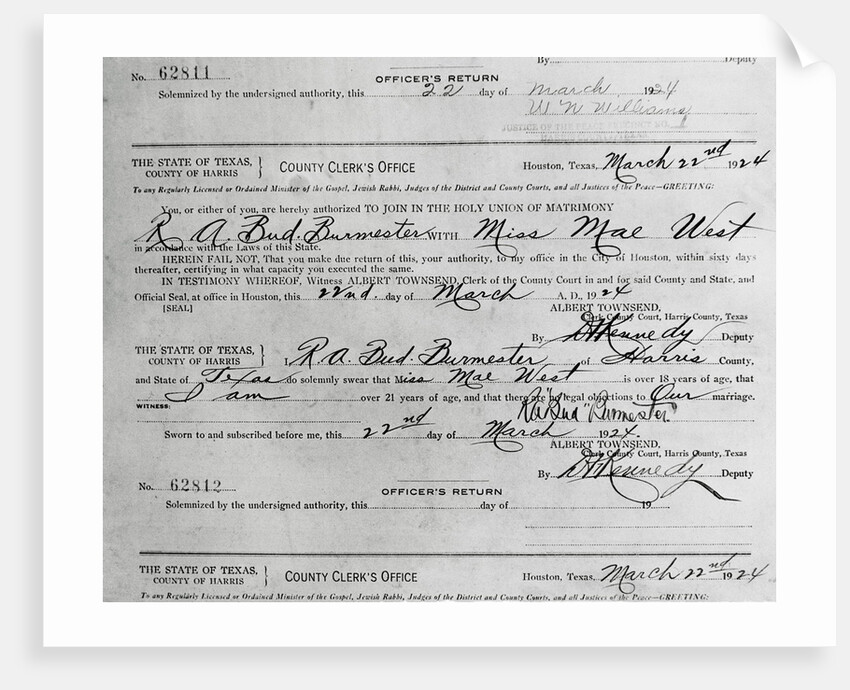 By Deputy
No. 62811
OFFICER'S RETURN
Solemnized by the undersigned authority, this 22 day of March 1924
W N Williams
THE STATE OF TEXAS, } COUNTY CLERK'S OFFICE Houston, Texas, March 22nd 1924
COUNTY OF HARRIS
To any Regularly Licensed or Ordained Minister of the Gospel, Jewish Rabbi, Judges of the District and County Courts, and all Justices of the Peace—GREETING:
You, or either of you, are hereby authorized TO JOIN IN THE HOLY UNION OF MATRIMONY
R. A. Bud. Burmester WITH Miss Mae West
in accordance with the Laws of this State.
HEREIN FAIL NOT, That you make due return of this, your authority, to my office in the City of Houston, within sixty days
thereafter, certifying in what capacity you executed the same.
IN TESTIMONY WHEREOF, Witness ALBERT TOWNSEND, Clerk of the County Court in and for said County and State, and
Official Seal, at office in Houston, this 22nd. day of March A. D., 1924
[SEAL] ALBERT TOWNSEND,
Clerk County Court, Harris County, Texas
By D H Kennedy Deputy
THE STATE OF TEXAS, } I R. A. Bud. Burmester of Harris County,
COUNTY OF HARRIS
and State of Texas do solemnly swear that Miss Mae West is over 18 years of age, that
I am over 21 years of age, and that there are no legal objections to Our marriage.
WITNESS: R.A "Bud" Burmester
Sworn to and subscribed before me, this 22nd day of March 1924.
ALBERT TOWNSEND,
Clerk County Court, Harris County, Texas
By D H Kennedy Deputy
No. 62812
OFFICER'S RETURN
Solemnized by the undersigned authority, this day of 19
THE STATE OF TEXAS, } COUNTY CLERK'S OFFICE Houston, Texas, March 22nd 1924
COUNTY OF HARRIS
To any Regularly Licensed or Ordained Minister of the Gospel, Jewish Rabbi, Judges of the District and County Courts, and all Justices of the Peace—GREETING: